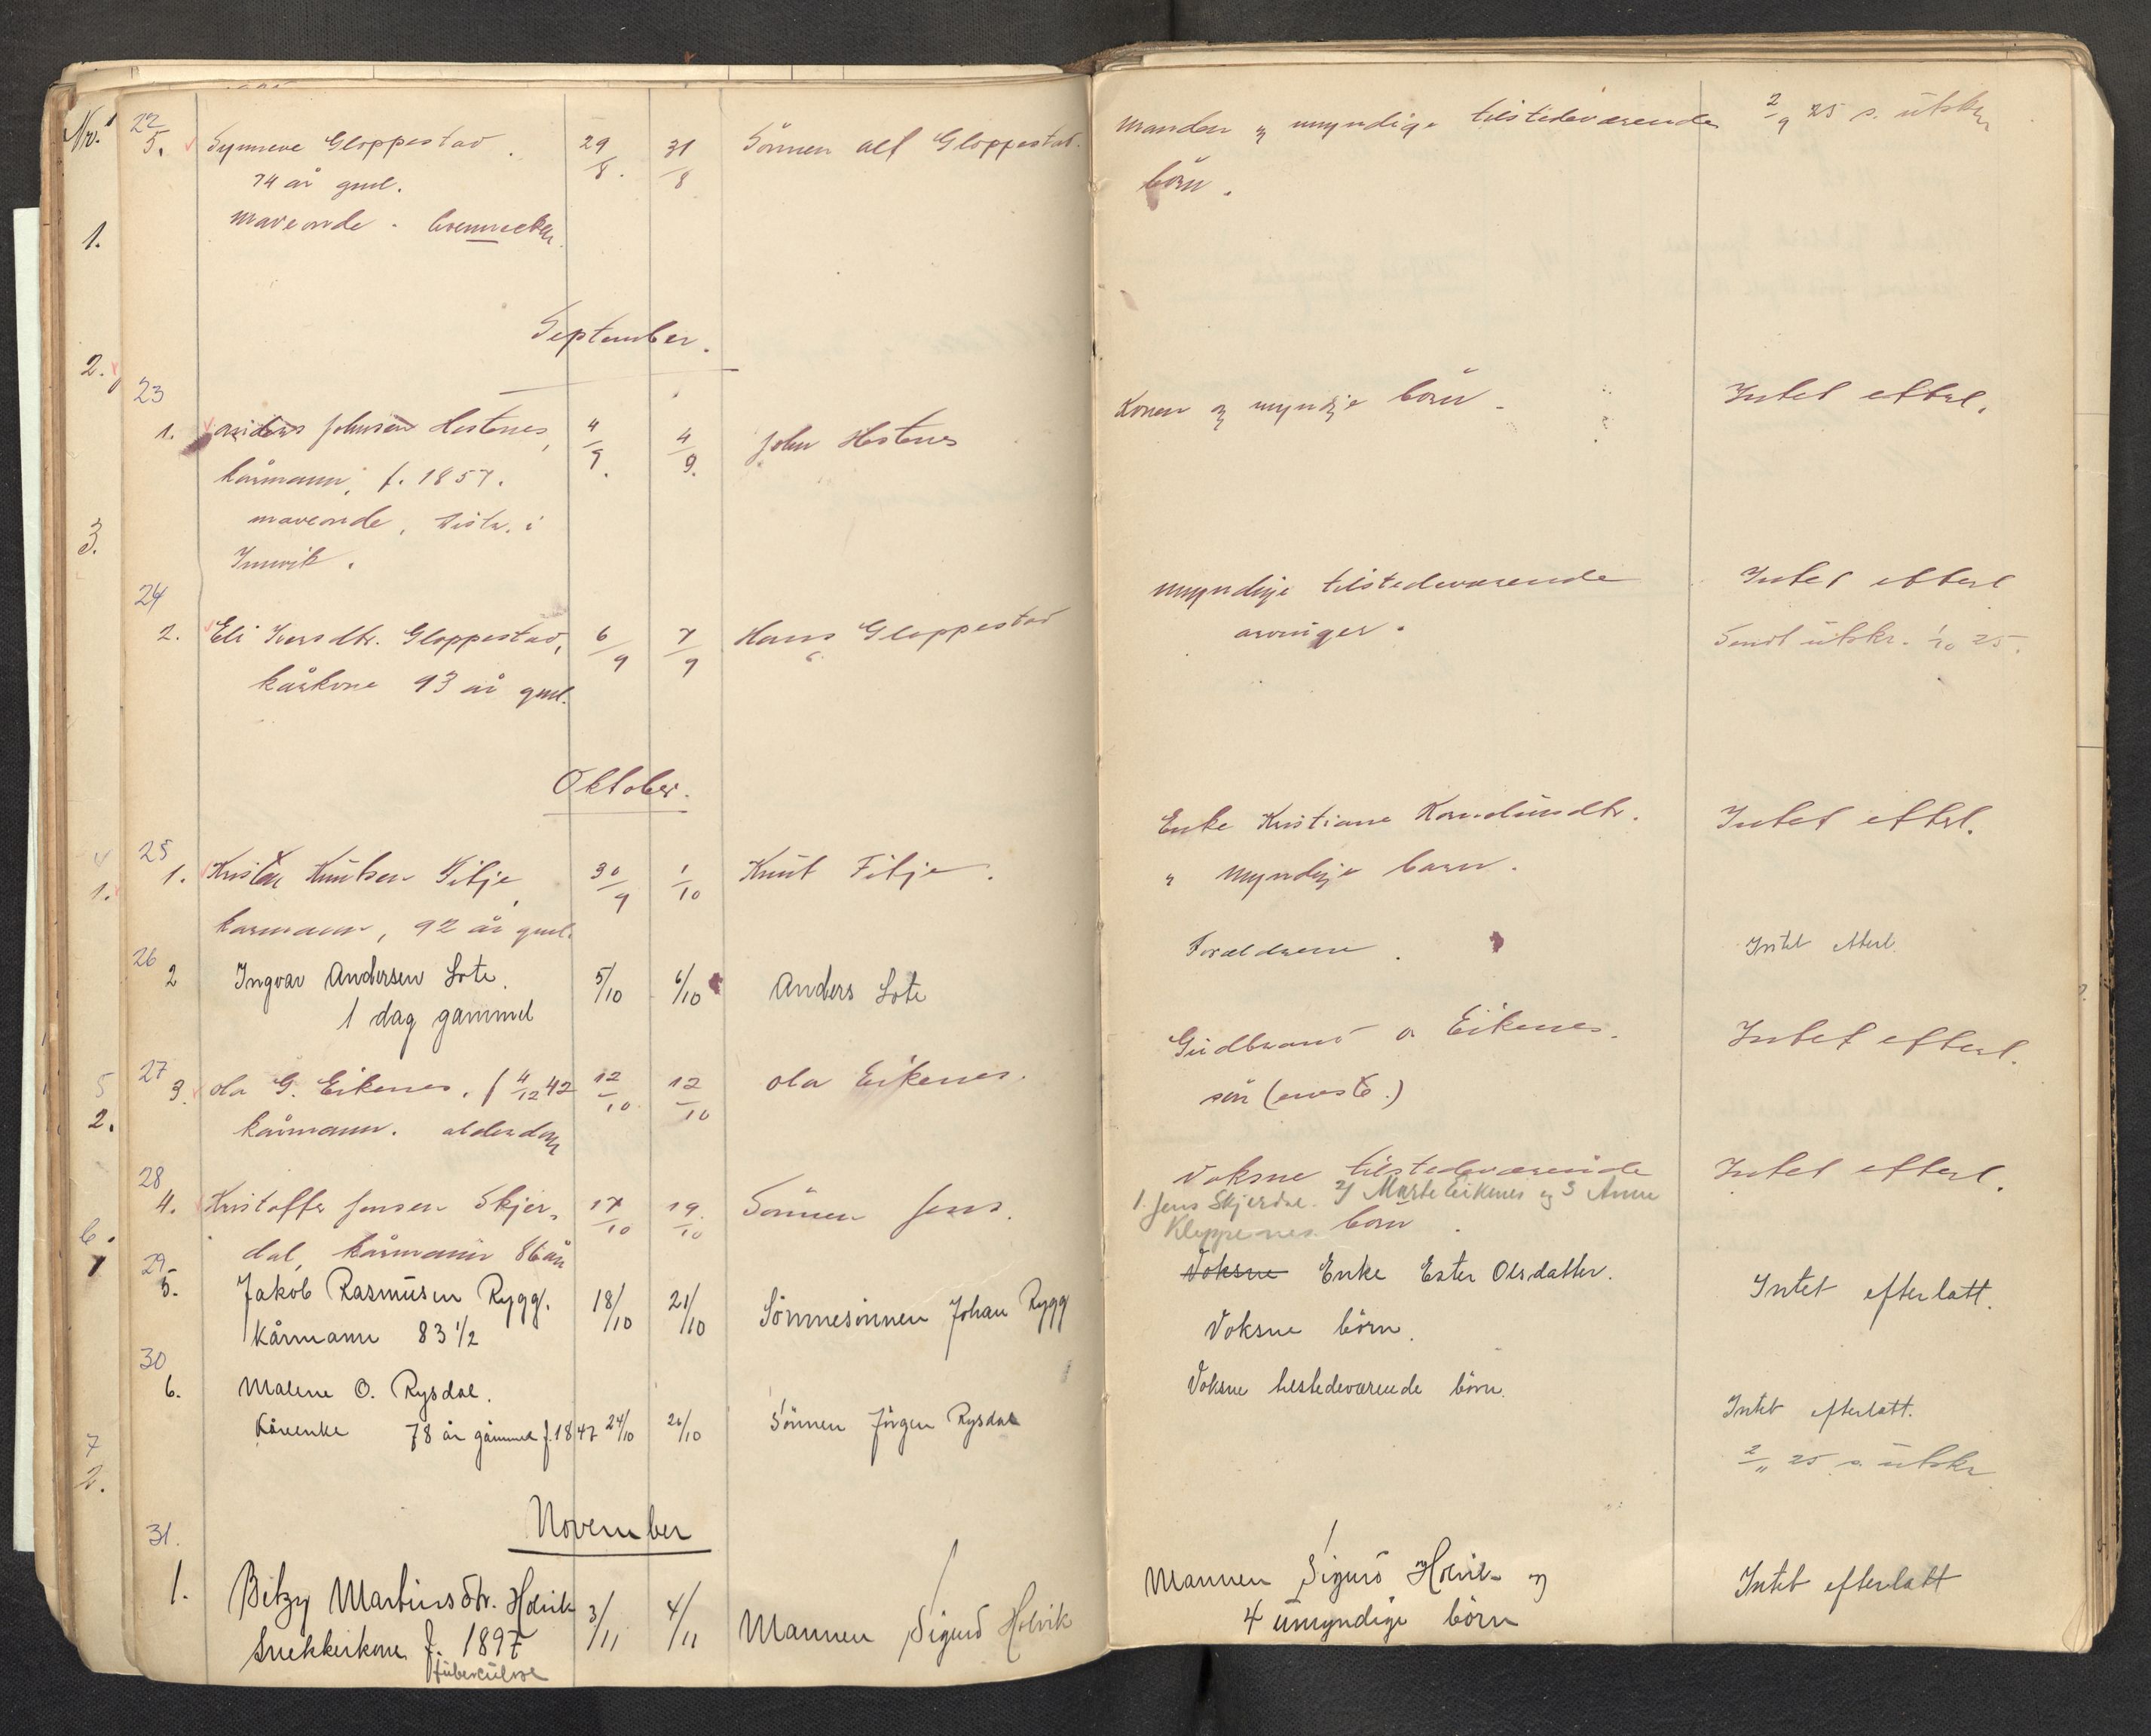 Nr. 22
5. Synneve Gloppestad. 29/8. 31/8 Sönnen Alf Gloppestad. Manden og myndige tilstedeværende 2/9 25 s. utskr
74 år gml. börn.
maveonde.
1.
September.
2.
23
1. Anders Johnsen Hestenes, 4/9. 4/9. John Hestenes Konen og myndige börn. Intet efterl.
kårmann, f. 1857.
maveonde, i
3. Innvik.
24
2. Eli Iversdtr. Gloppestad, 6/9 7/9 Hans Gloppestad Myndige tilstedeværende Intet efterl
kårkone 93 år gml. arvinger. Sendt utskr. 1/10 25.
Oktober.
25
1. Kristen Knutsen Fitje, 30/9 1/10 Knut Fitje. Enke Kristiane Intet efterl.
1. karmann, 92 år gml. " myndige barn.
26
2 Ingvar Andersen Lote. 5/10 6/10 Anders Lote Forældrene. Intet efterl.
1 dag gammel
27
3. Ola G. Eikenes. f 4/12 42 12/10 12/10 Ola Eikenes. Gudbrand O. Eikenes. Intet efterl.
5
2. kårmann. alderdom sön (eneste.)
28
4. Kristoffer Jensen Skjer- 17/10 19/10 Sönnen Jens. Voksne tilstedeværende Intet efterl.
1. Jens Skjerdal. 2) Marte Eikenes og 3 Anne
Kleppenes. börn.
6. dal, kårmann 86 år
29
5. Jakob Rasmusen Rygg. 18/10 21/10 Sönnesönnen Johan Rygg Voksne Enke Ester Olsdatter. Intet efterlatt.
Kårmann 83 1/2 Voksne börn.
30
6. Malene O. Rysdal. Voksne tilstedeværende börn. Intet efterlatt.
Kårenke 78 år gammel f. 1847 24/10 26/10 Sönnen Jörgen Rysdal
7
2. 2/11 25 s. utskr
November
31.
1. Betzy Martinsdtr. Holvik 3/11 4/11 Mannen Sigurd Holvik Mannen Sigurd Holvik og Intet efterlatt
Snekkerkone f. 1897 4 umyndige börn
tuberkulose